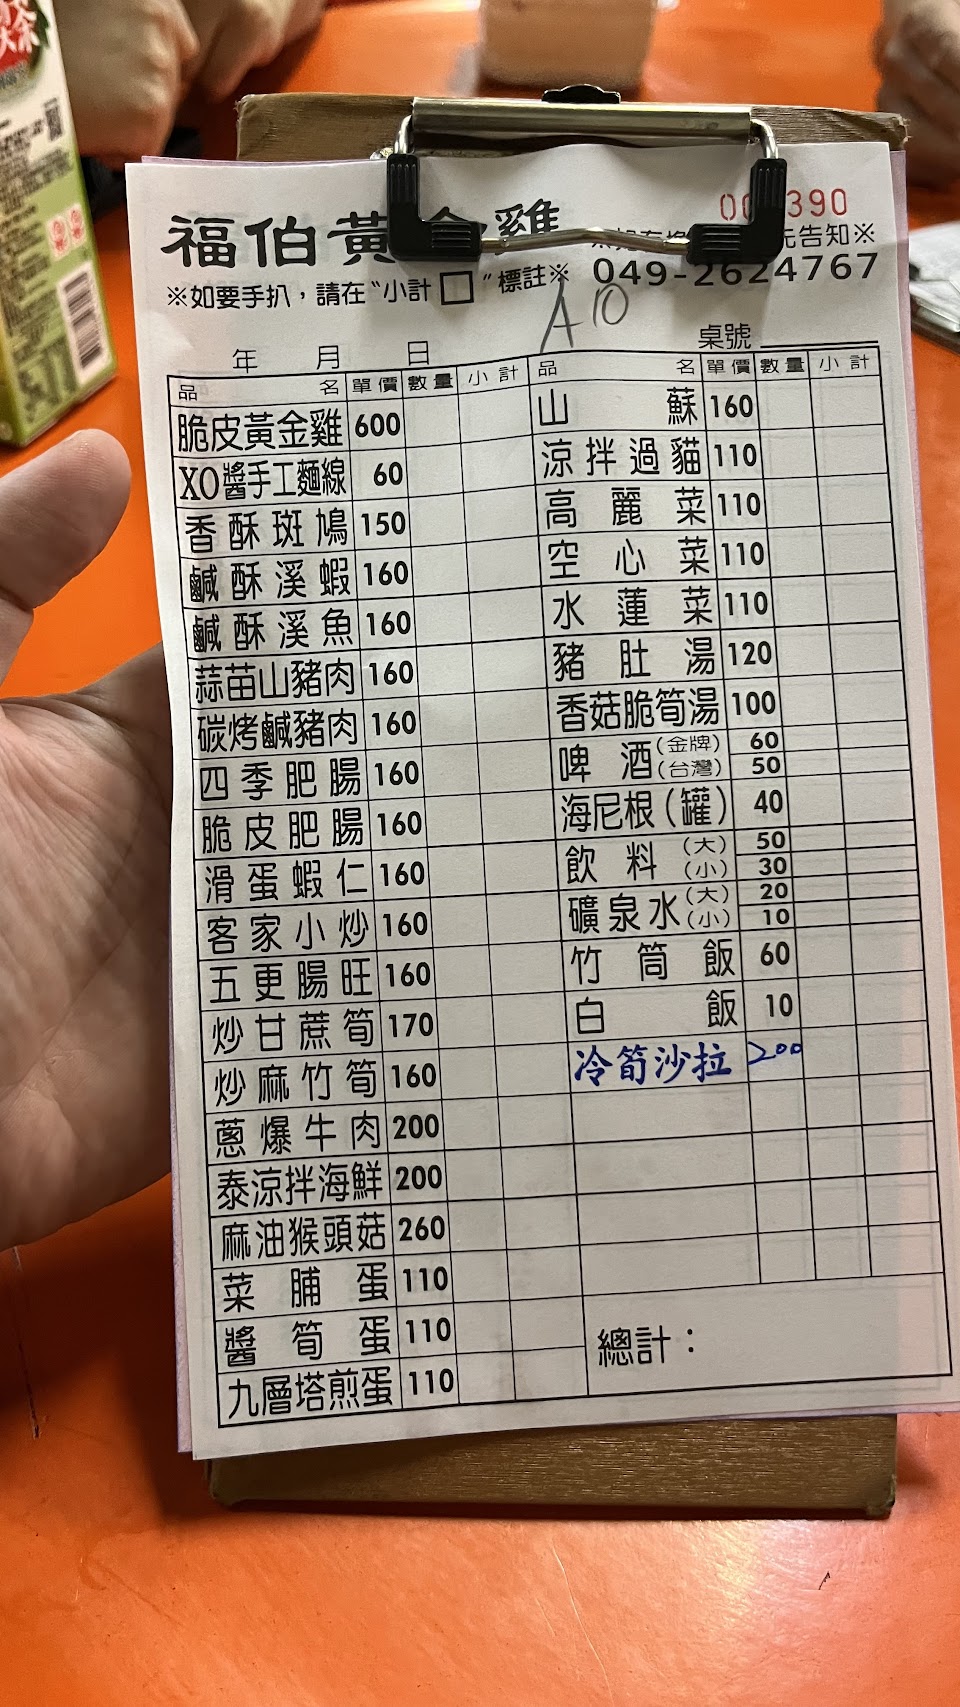 福伯黃金雞
390
先告知※
※如要手扒，請在“小計□”標註※ 049-2624767
A10
年 月 日 桌號
品名 單價 數量 小計
脆皮黃金雞 600
XO醬手工麵線 60
香酥斑鳩 150
鹹酥溪蝦 160
鹹酥溪魚 160
蒜苗山豬肉 160
碳烤鹹豬肉 160
四季肥腸 160
脆皮肥腸 160
滑蛋蝦仁 160
客家小炒 160
五更腸旺 160
炒甘蔗筍 170
炒麻竹筍 160
蔥爆牛肉 200
泰涼拌海鮮 200
麻油猴頭菇 260
菜脯蛋 110
醬筍蛋 110
九層塔煎蛋 110
品名 單價 數量 小計
山蘇 160
涼拌過貓 110
高麗菜 110
空心菜 110
水蓮菜 110
豬肚湯 120
香菇脆筍湯 100
啤酒(金牌) 60
(台灣) 50
海尼根(罐) 40
飲料(大) 50
(小) 30
礦泉水(大) 20
(小) 10
竹筒飯 60
白飯 10
冷筍沙拉 200
總計：